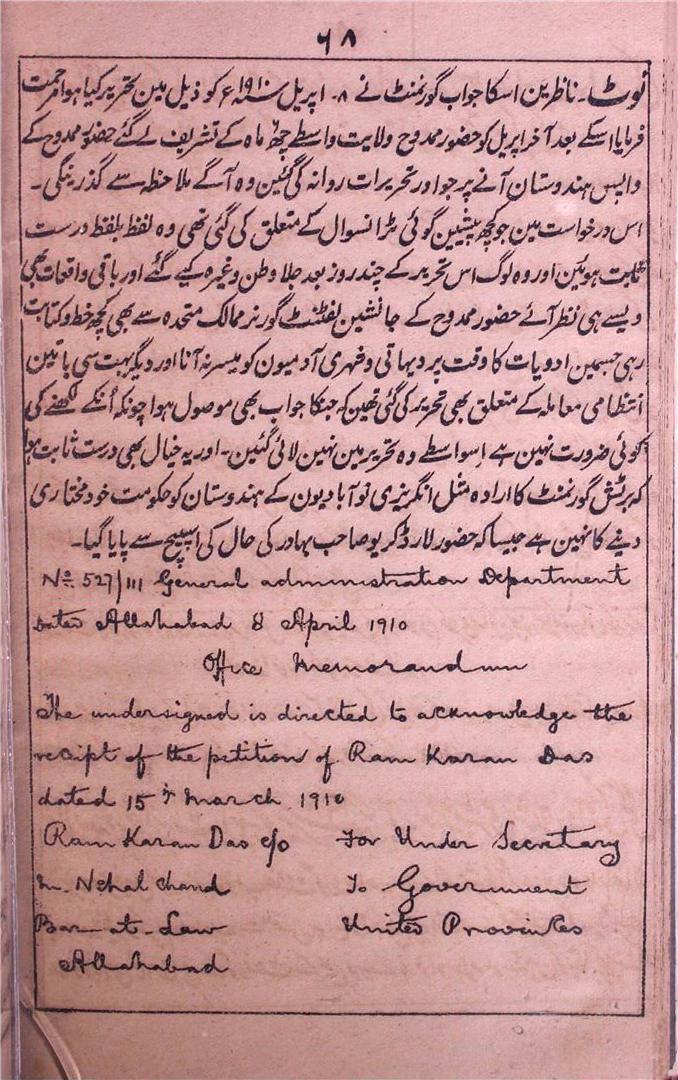 ۶۸
نوٹ۔ ناظرین اسکا جواب گورنمنٹ نے ۸۔ اپریل سنہ ۱۹۱۰ء کو ذیل مین تحریر کیا ہوا مرحمت
فرمایا اسکے بعد آخر اپریل کو حضور ممدوح ولایت واسطے چھ ماہ کے تشریف لے گئے حضور ممدوح کے
واپس ہندوستان آنے پر جو اور تحریرات روانہ کی گئین وہ آگے ملاحظہ سے گذرینگی۔
اس درخواست مین جو کچھ پیشین گوئی بڑا نسوال کے متعلق کی گئی تھی وہ لفظ بلفظ درست
ثابت ہوئین اور وہ لوگ اس تحریر کے چند روز بعد جلا وطن وغیرہ کیے گئے اور باقی واقعات بھی
ویسے ہی نظر آئے حضور ممدوح کے جانشین لفٹنٹ گورنر ممالک متحدہ سے بھی کچھ خط و کتابت
رہی جسمین ادویات کا وقت پر دیہاتی و شہری آدمیون کو میسر نہ آنا اور دیگر بہت سی باتین
انتظامی معاملہ کے متعلق بھی تحریر کی گئی تھین کہ جنکا جواب بھی موصول ہوا چونکہ اُنکے لکھنے کی
کوئی ضرورت نہین ہے اسواسطے وہ تحریر مین نہین لائی گئین۔ اور یہ خیال بھی درست ثابت ہوا
کہ برٹش گورنمنٹ کا ارادہ مثل انگریزی نوآبادیون کے ہندوستان کو حکومت خود مختاری
دینے کا نہین ہے جیسا کہ حضور لارڈ کریو صاحب بہادر کی حال کی اسپیچ سے پایا گیا۔
No. 527/III General administration Department
Dated Allahabad 8 April 1910
Office Memorandum
The undersigned is directed to acknowledge the
receipt of the petition of Ram Karan Das
dated 15th March 1910
Ram Karan Das c/o For Under Secretary
m. Nehal Chand To Government
Bar-at-Law United Provinces
Allahabad